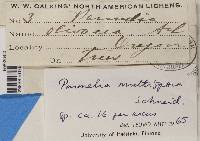 W. W. CALKINS' NORTH AMERICAN LICHENS.
No. 3 Parmelia
olivacea Ach
Locality Oregon
On Trees
Parmelia multispora
Schneid.
Sp. ca. 16 per ascus
65
University of Helsinki, Finland